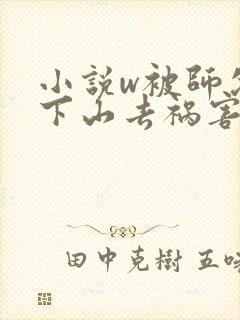 小説w被師
下山去禍害
田中克樹 五